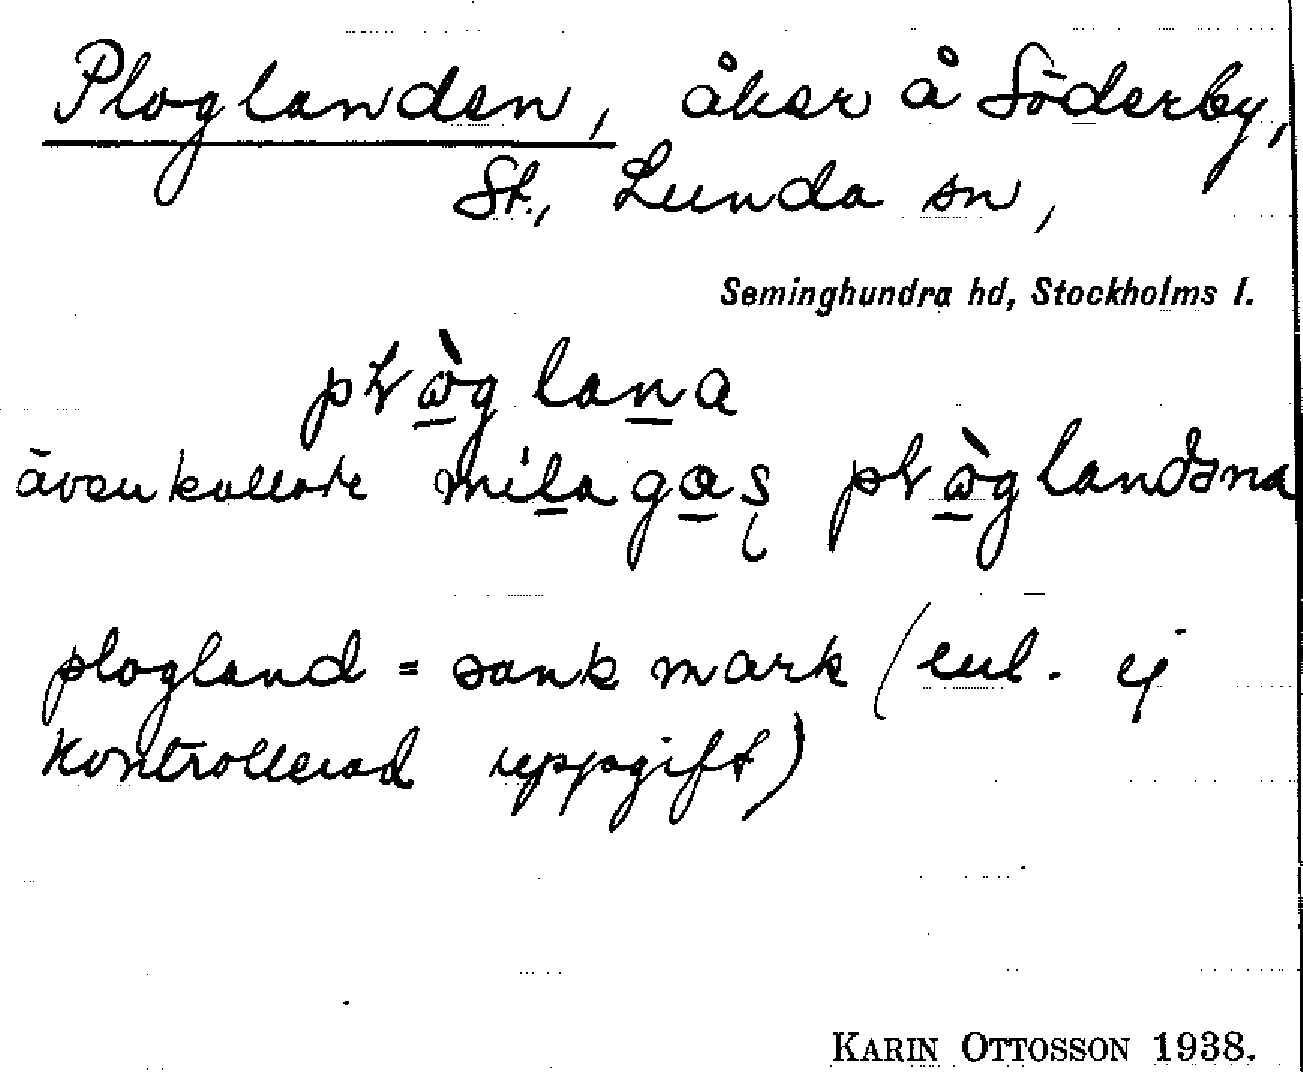 Ploglanden, åker å Söderby,
St., Lunda sn,
Seminghundra hd, Stockholms l.
lana
även kallade landəna
plogland = sank mark (enl. ej
kontrollerad uppgift)
KARIN OTTOSSON 1938.